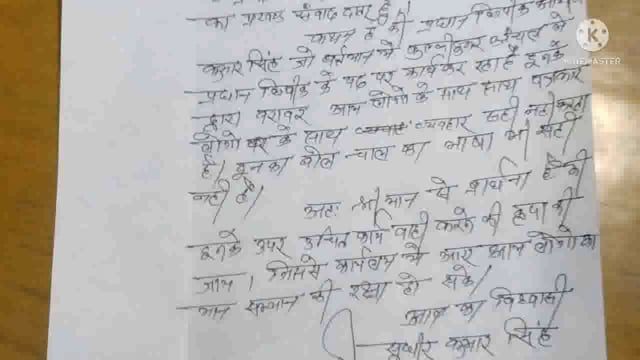 का प्रखण्ड संवाद दाता है।
कथन है की प्रधान लिपीक
कुमार सिंह जो वर्तमान में अंचल के
प्रधान लिपीक के पद पर कार्य कर रहा है इनके
द्वारा बराबर आम लोगो के साथ साथ पत्रकार
लोगो के साथ व्यवहार सही नही करता
है। इनका बोल-चाल का भाषा भी सही
नही है।
अतः श्री मान से प्रार्थना है की
इनके उपर उचित कार्य वाही करने की कृपा की
जाय। जिससे कार्यलय में आए आम लोगो का
मान सम्मान की रक्षा हो सके।
आप का विश्वासी
सुधीर कुमार सिंह
KINEMASTER